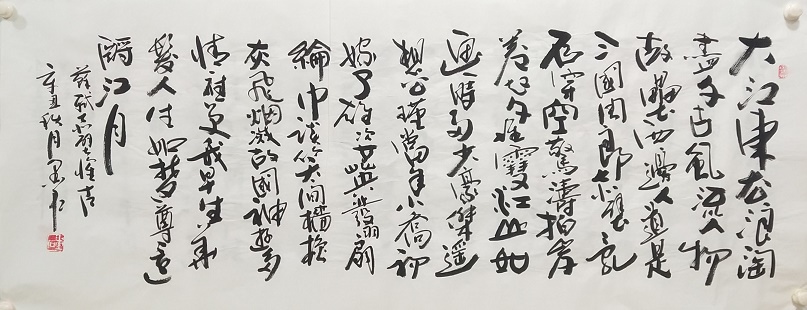 大江東去浪淘
盡千古風流人物
故壘西邊人道是
三國周郎赤壁亂
石穿空驚濤拍岸
卷起千堆雪江山如
畫一時多少豪傑遙
想公瑾當年小喬初
嫁了雄姿英發羽扇
綸巾談笑間檣櫓
灰飛烟滅故國神遊多
情應笑我早生華
髮人生如夢一尊還
酹江月
蘇軾赤壁懷古
辛丑秋月